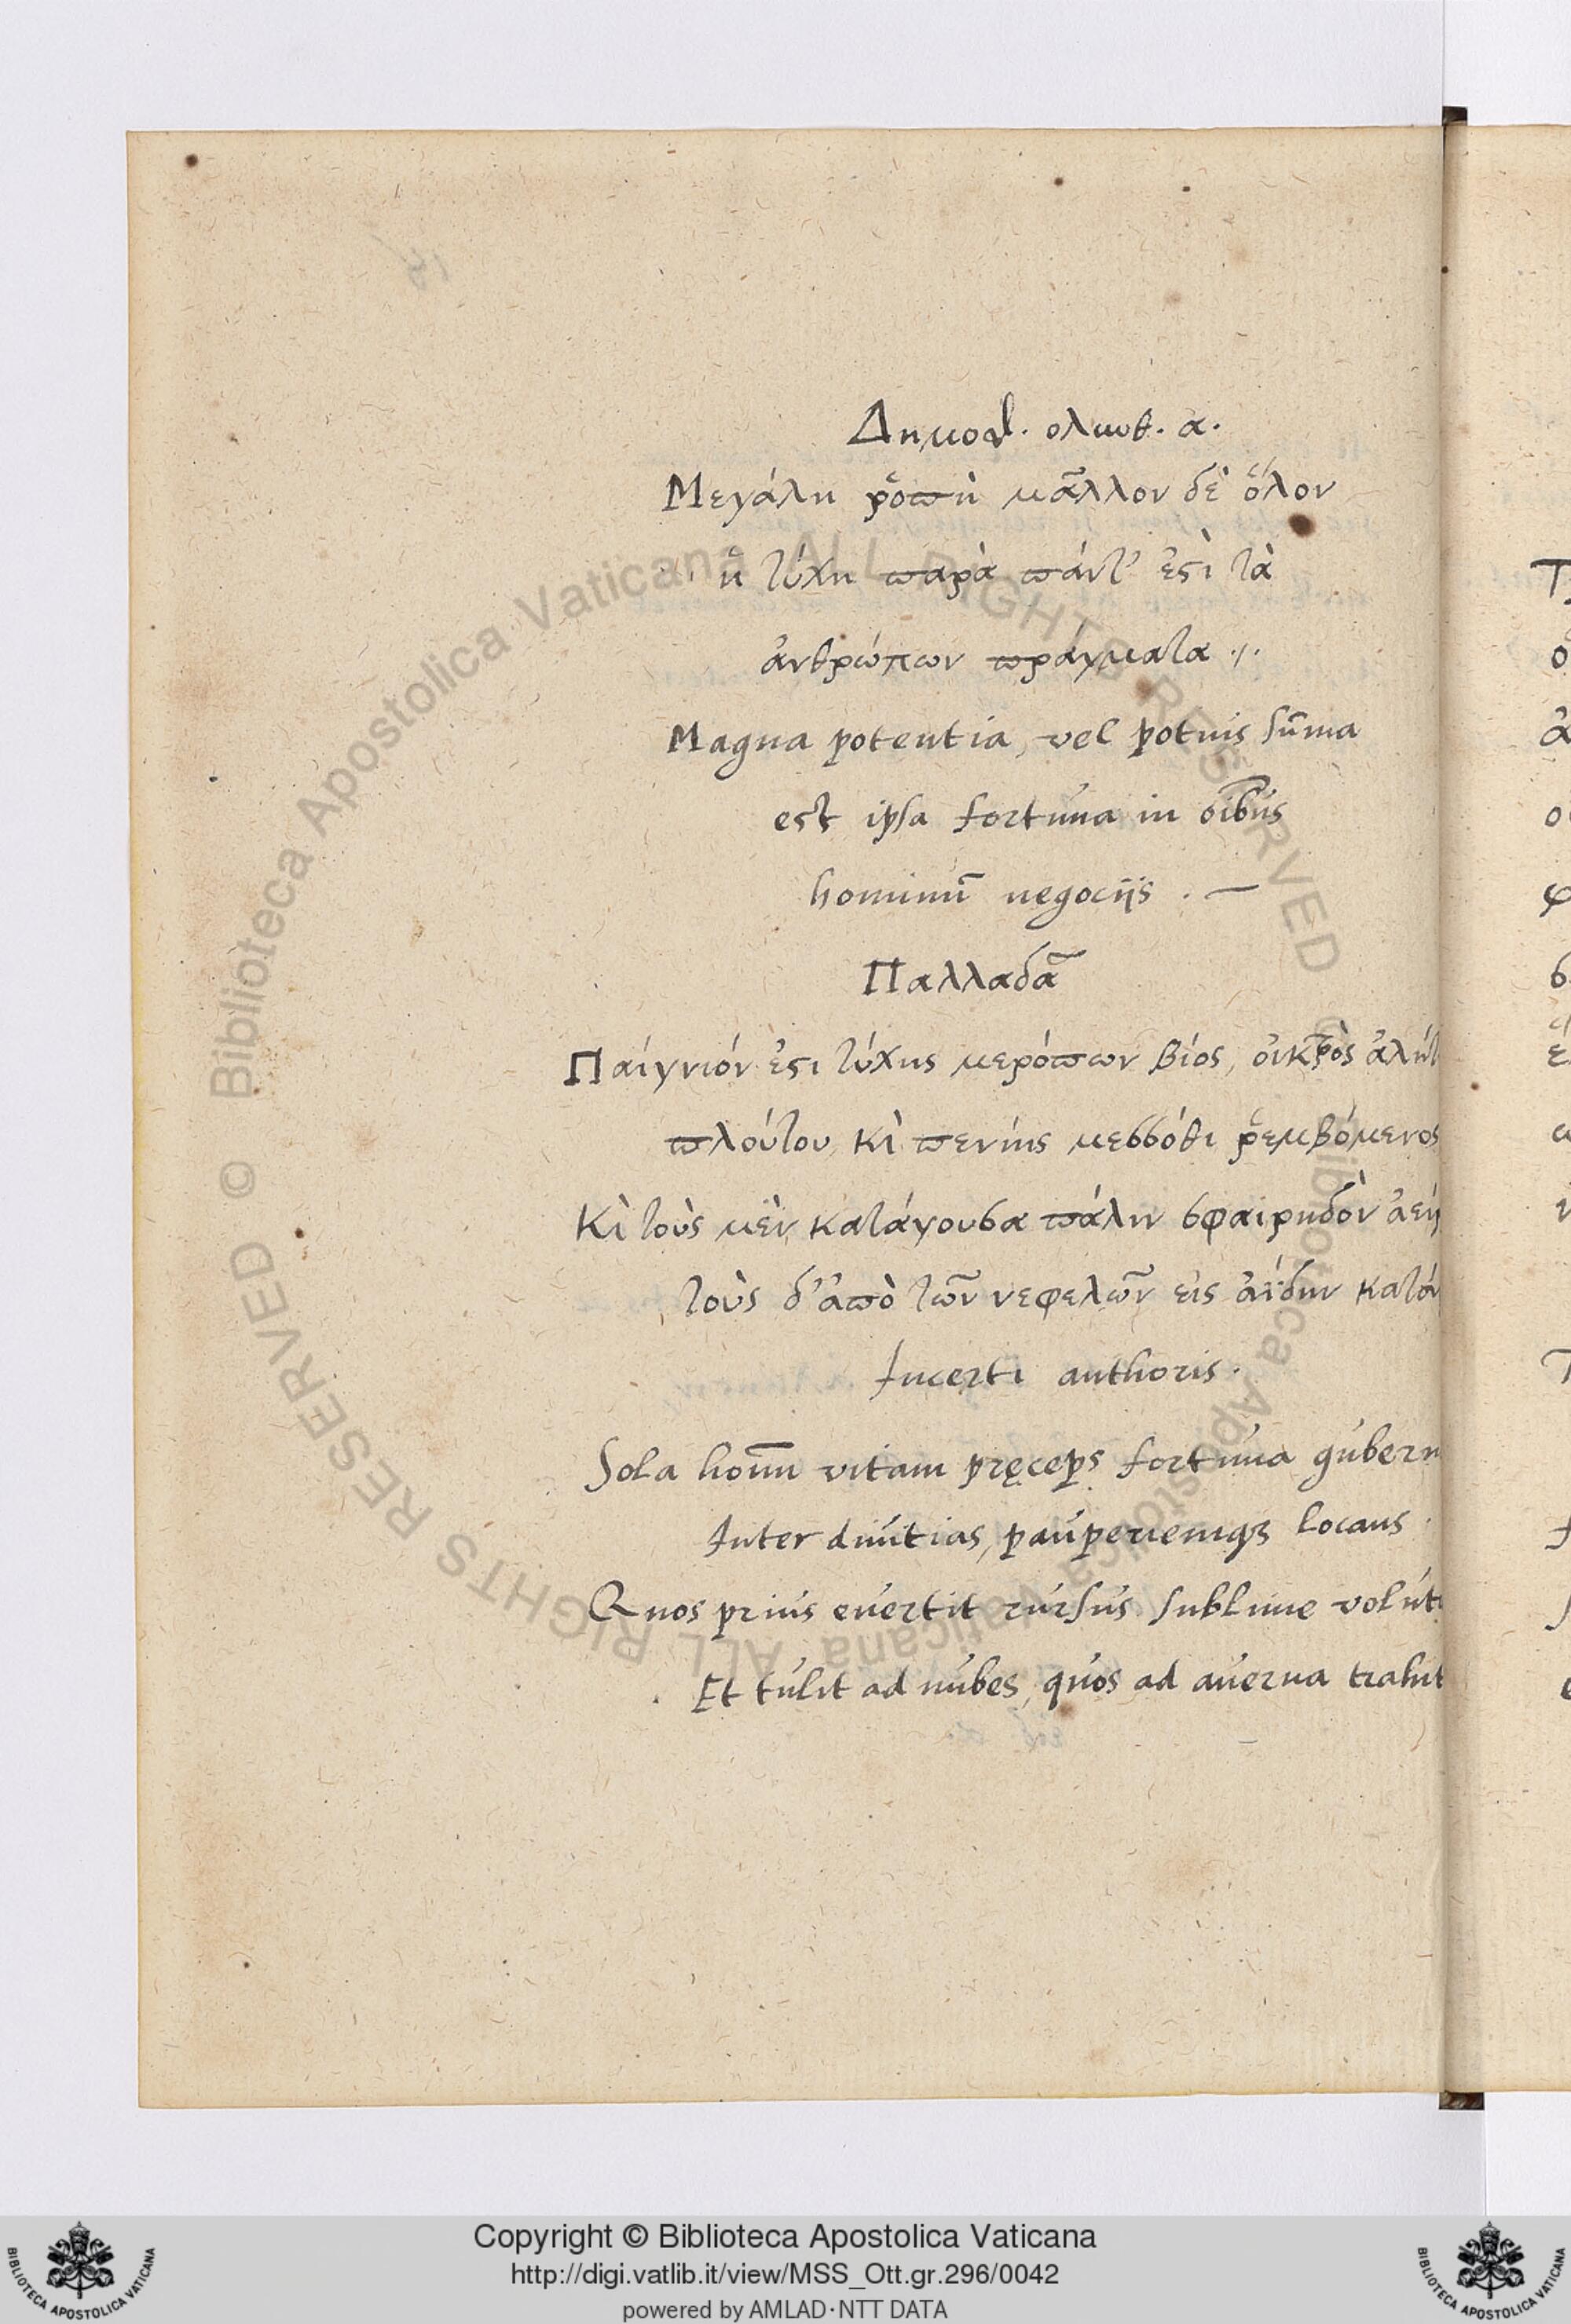 Δημοσθ. ολυνθ. α.
Μεγάλη ῥοπὴ μᾶλλον δὲ ὅλον
ἡ τύχη παρὰ πάντ' ἐστὶ τὰ
ἀνθρώπων πράγματα ·/·
Magna potentia, vel potius sūma
est ipsa fortuna in oībus
hominū negociis . —
Παλλαδᾶ
Παίγνιόν ἐστι τύχης μερόπων βίος, οἰκτρὸς ἀλήτ
πλούτου, κὶ πενίης μεσσόθι ῥεμβόμενος
Κὶ τοὺς μὲν κατάγουσα πάλιν σφαιρηδὸν ἀεί
τοὺς δ' ἀπὸ τῶν νεφελῶν εἰς ἀΐδην κατά
Incerti authoris.
Sola hoīnū vitam pręceps fortuna gubern
Inter diuitias, pauperiemqꝫ locans .
Quos prius euertit rursus sublime volut
Et tulit ad nubes, quos ad auerna trahit
Copyright © Biblioteca Apostolica Vaticana
http://digi.vatlib.it/view/MSS_Ott.gr.296/0042
powered by AMLAD·NTT DATA
BIBLIOTECA APOSTOLICA VATICANA
BIBLIOTECA APOSTOLICA VATICANA
© Biblioteca Apostolica Vaticana ALL RIGHTS RESERVED
© Biblioteca Apostolica Vaticana ALL RIGHTS RESERVED